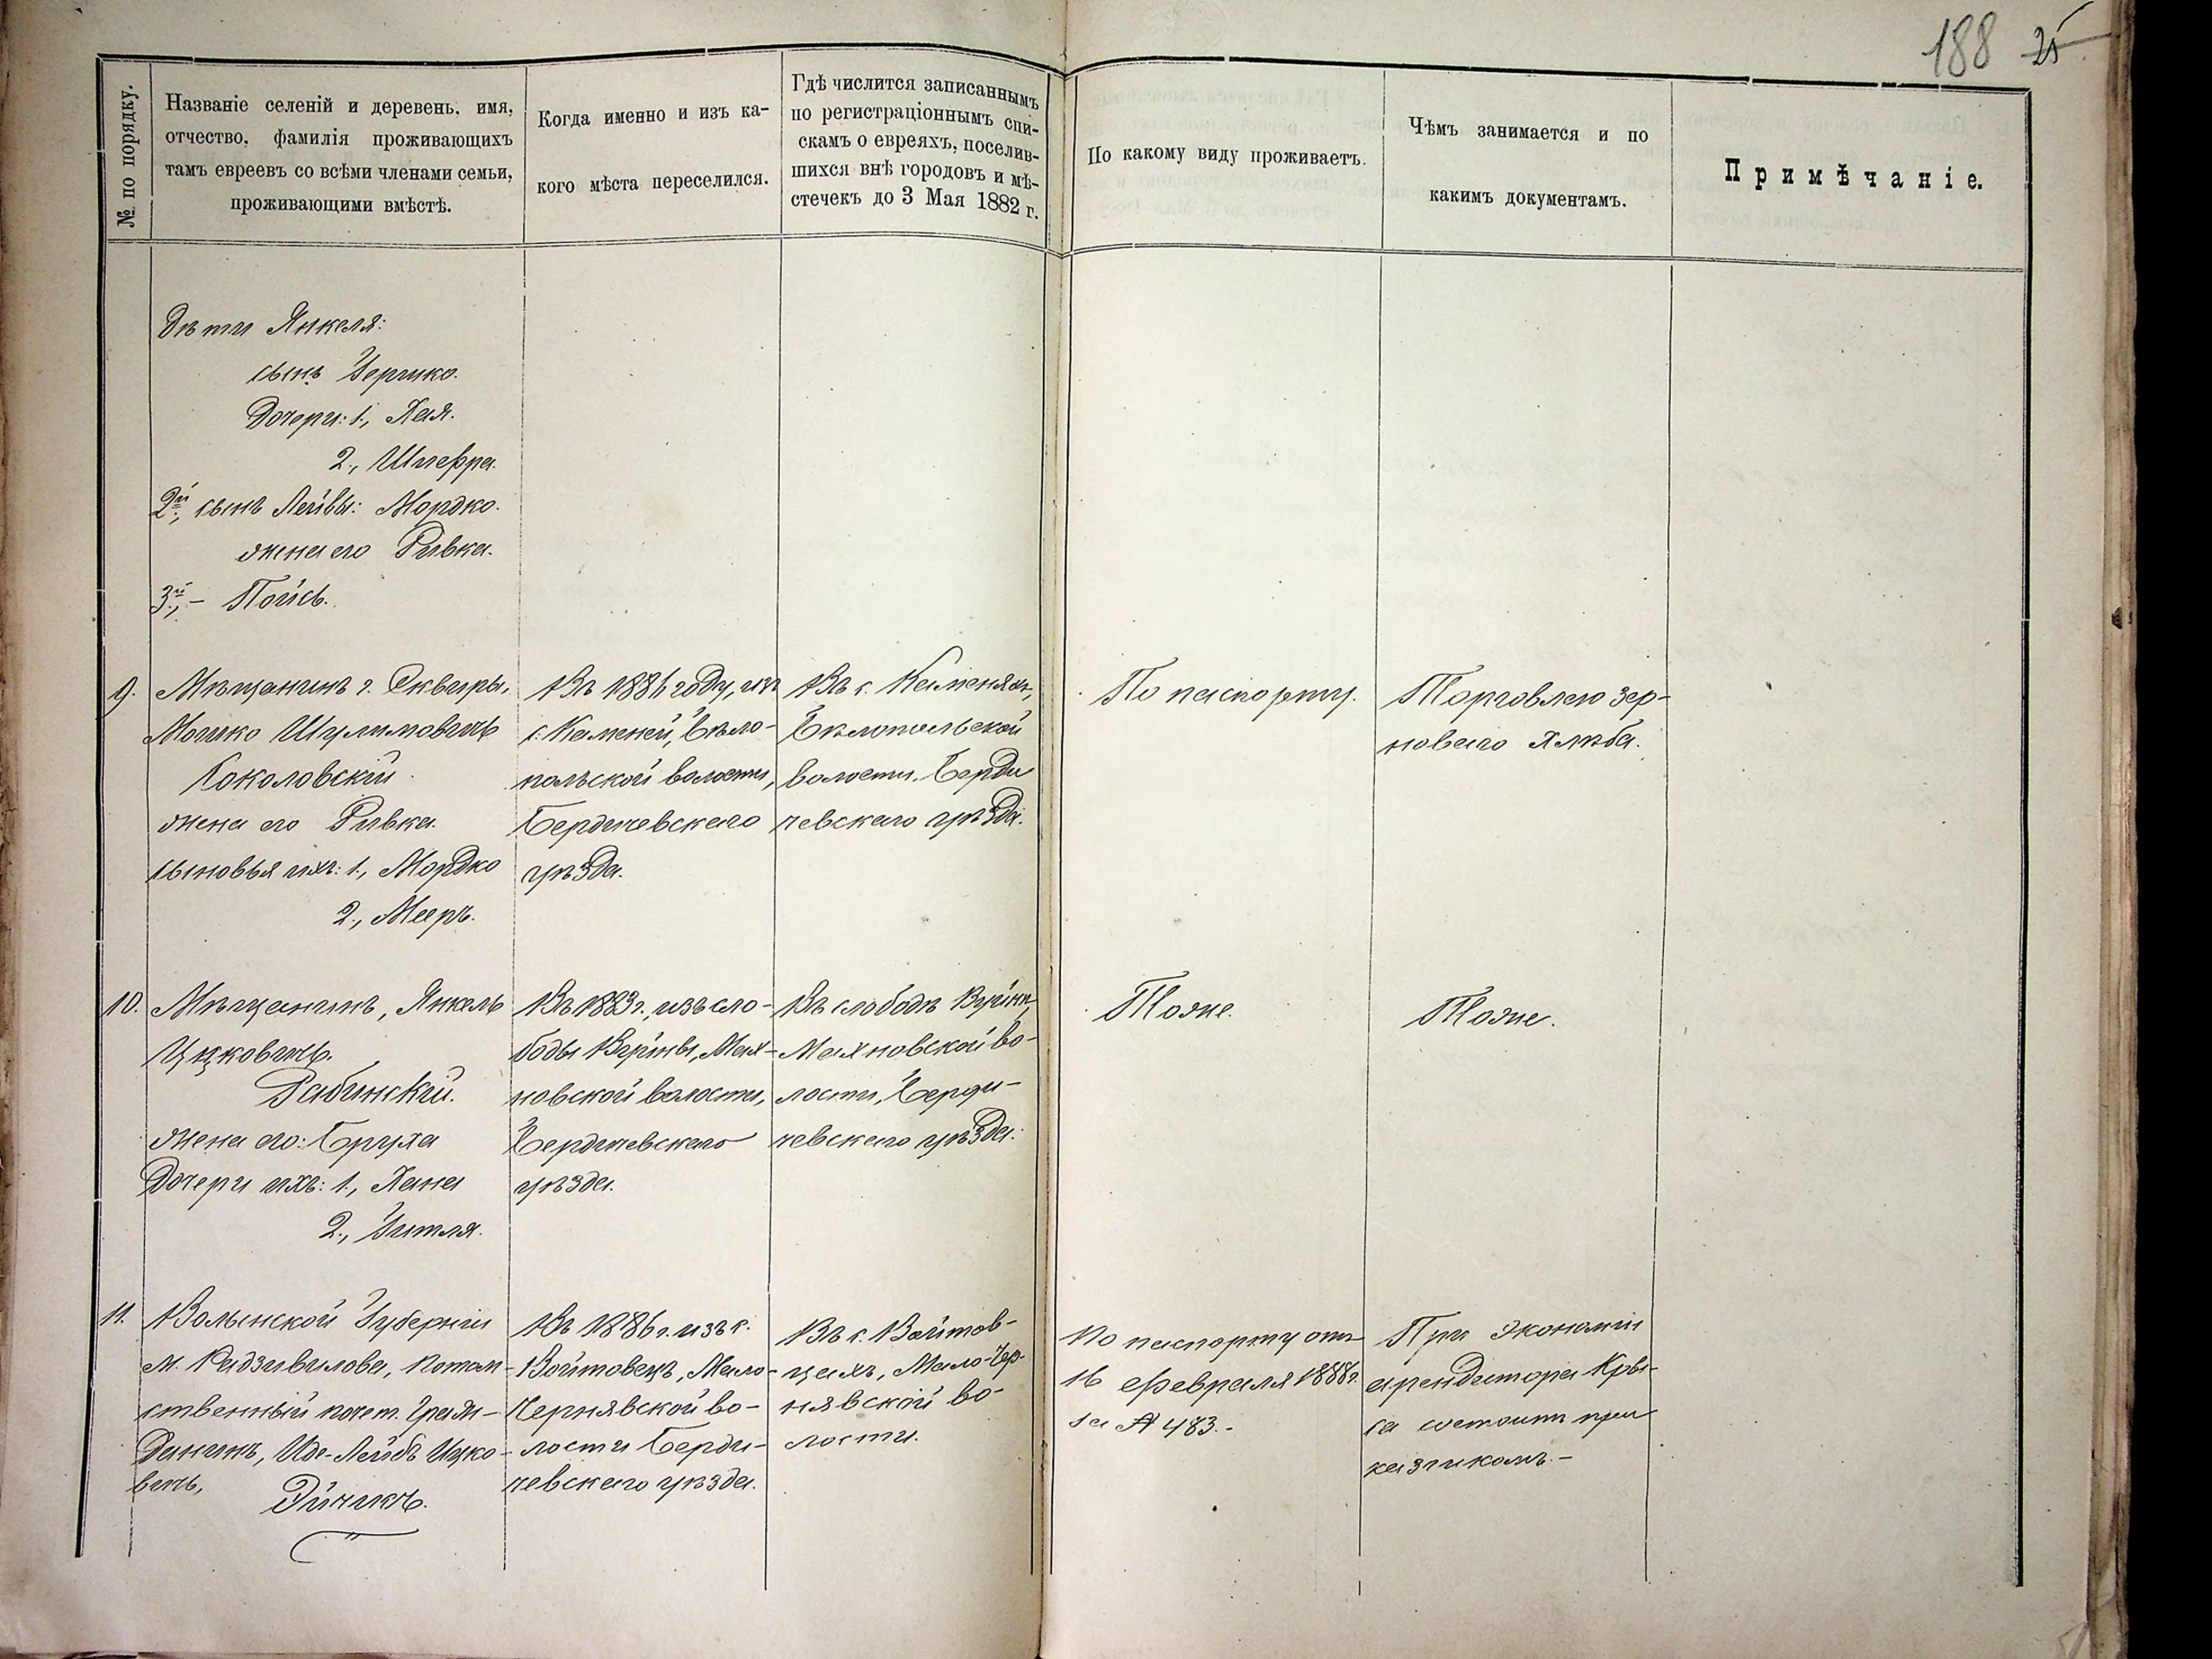 188 25
№ по порядку.
Названіе селеній и деревень, имя,
отчество, фамилія проживающихъ
тамъ евреевъ со всѣми членами семьи,
проживающими вмѣстѣ.
Когда именно и изъ ка-
кого мѣста переселился.
Гдѣ числится записаннымъ
по регистраціоннымъ спи-
скамъ о евреяхъ, поселив-
шихся внѣ городовъ и мѣ-
стечекъ до 3 Мая 1882 г.
По какому виду проживаетъ.
Чѣмъ занимается и по
какимъ документамъ.
Примѣчаніе.
Дѣти Янкеля:
сынъ Гершко.
Дочери: 1., Хая.
2., Шифра.
2й, сынъ Лейвы: Мордко.
жена его Ривка.
3й, – Пойсъ.
9.
Мѣщанинъ г. Сквиры,
Мошко Шулимовичъ
Соколовскій
жена его Ривка.
сыновья ихъ: 1., Мордко
2., Мееръ.
Въ 1886 году, изъ
с. Каменей, Бѣло-
польской волости,
Бердичевскаго
уѣзда.
Въ с. Каменяхъ,
Бѣлопольской
волости, Берди
чевскаго уѣзда.
По паспорту.
Торговлею зер-
новаго хлѣба.
10.
Мѣщанинъ, Янкель
Ицковичъ.
Рабинскій.
жена его: Бруха
Дочери ихъ: 1., Хана
2., Гитля.
Въ 1883 г., изъ сло-
боды Вуйны, Мах-
новской волости,
Бердичевскаго
уѣзда.
Въ слободѣ Вуйнѣ,
Махновской во-
лости, Берди-
чевскаго уѣзда.
Тоже.
Тоже.
11.
Волынской Губерніи
м. Радзивилова, потом-
ственный почет. Граж-
данинъ, Иде-Лейбъ Ицко-
вичъ,
Въ 1886 г. изъ с.
Войтовецъ, Мало-
Чернявской во-
лости Берди-
чевскаго уѣзда.
Въ с. Войтов-
цахъ, Мало-Чер-
нявской во-
лости.
По паспорту отъ
16 февраля 1888 г.
за № 483.-
При экономіи
арендатора Кры-
са состоитъ при
казчикомъ.-